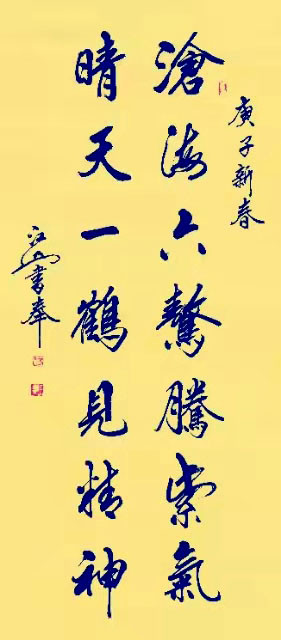 庚子新春
滄海六鰲騰紫氣
晴天一鶴見精神
江山書奉